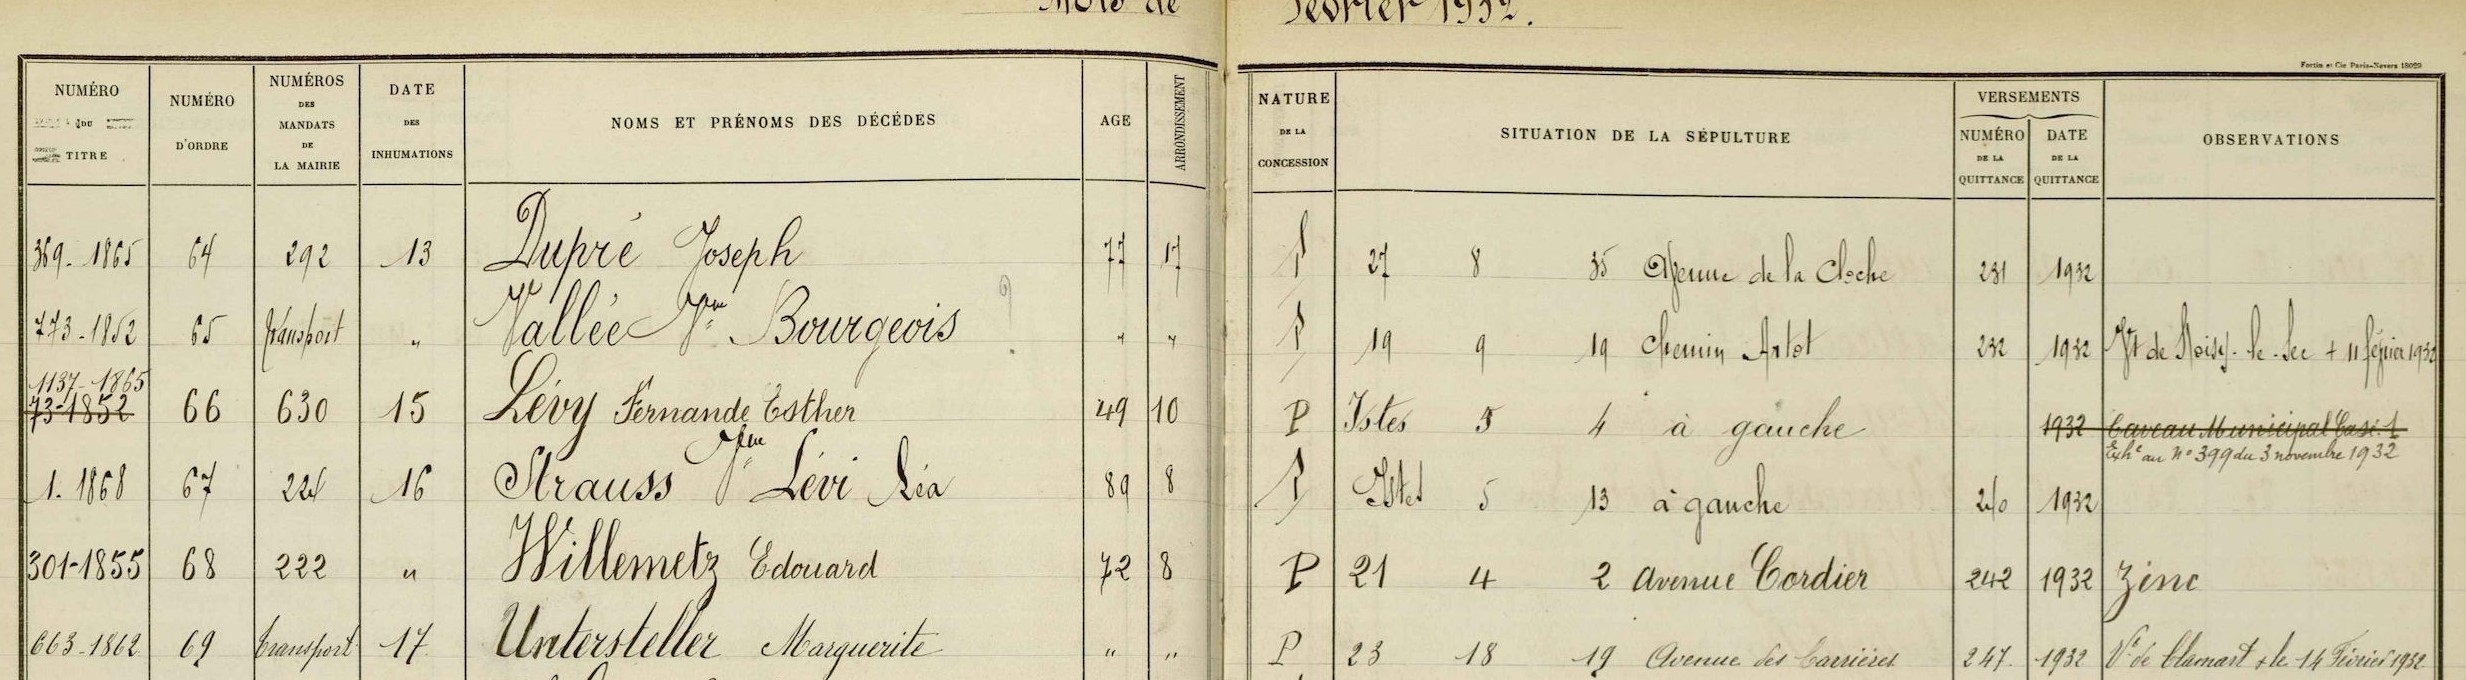 Mois de Février 1932.
Fortin et Cie Paris-Nevers 18029
NUMÉRO DU TITRE
NUMÉRO D'ORDRE
NUMÉROS DES MANDATS DE LA MAIRIE
DATE DES INHUMATIONS
NOMS ET PRÉNOMS DES DÉCÉDES
AGE
ARRONDISSEMENT
NATURE DE LA CONCESSION
SITUATION DE LA SÉPULTURE
VERSEMENTS
NUMÉRO DE LA QUITTANCE
DATE DE LA QUITTANCE
OBSERVATIONS
369-1865 64 292 13 Dupré Joseph 77 17 P 27 8 35 Avenue de la Cloche 231 1932
773-1852 65 transport " Vallée Vve Bourgeois ? " " P 19 9 19 chemin Artot 232 1932 Vt de Noisy-le-Sec + 11 février 1932
1137-1865
73-1852 66 630 15 Lévy Fernande Esther 49 10 P Istes 5 4 à gauche 1932 Caveau Municipal Case 1
Exhé au N° 399 du 3 novembre 1932
1-1868 67 224 16 Strauss Vve Lévi Léa 89 8 P Istes 5 13 à gauche 240 1932
301-1855 68 222 " Willemetz Edouard 72 8 P 21 4 2 Avenue Cordier 242 1932 Zinc
663-1862 69 transport 17 Untersteller Marguerite " " P 23 18 19 Avenue des Carrières 247 1932 Vt de Clamart + le 14 Février 1932